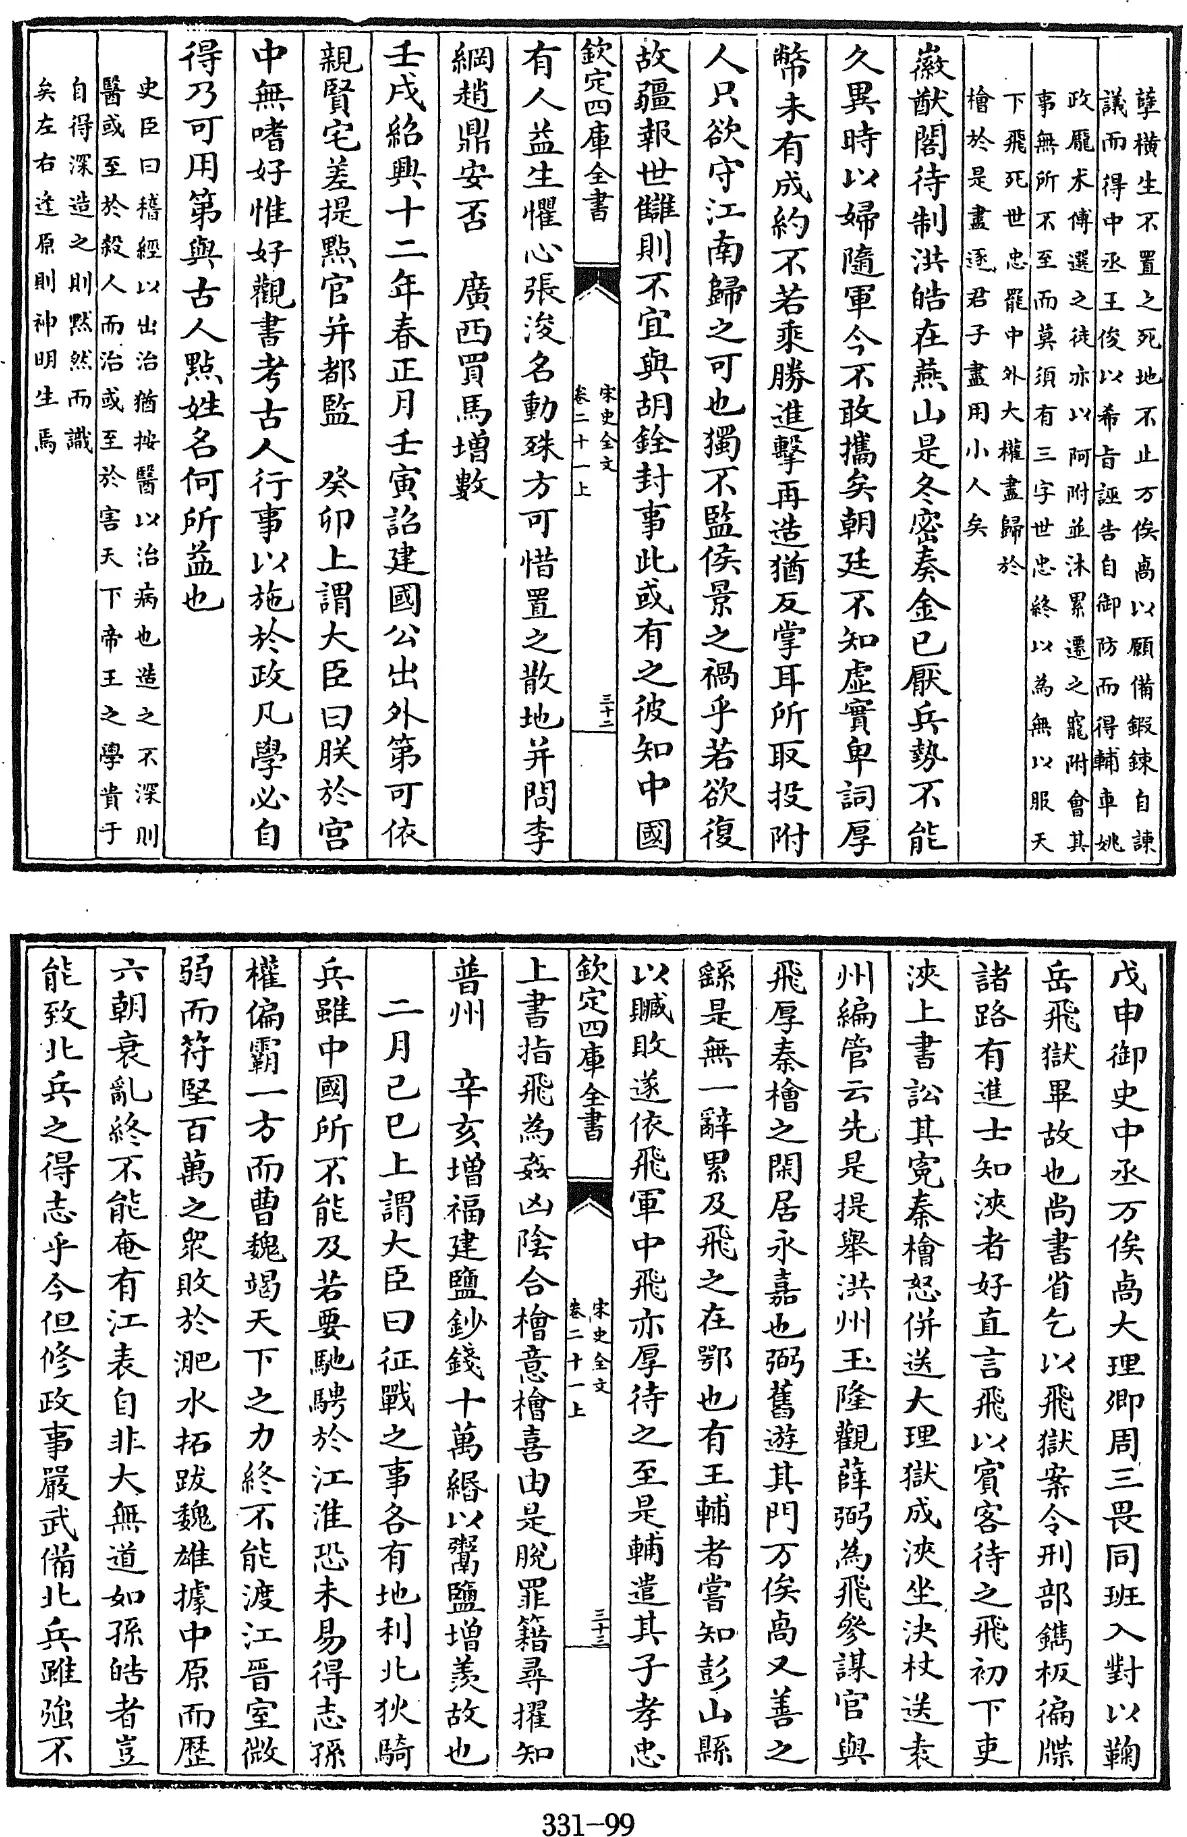 孽橫生不置之死地不止万俟卨以願備鍛鍊自諫
議而得中丞王俊以希旨誣告自御防而得輔車姚
政龐术傅選之徒亦以阿附並沐累遷之寵附會其
事無所不至而莫須有三字世忠終以為無以服天
下飛死世忠罷中外大權盡歸於
檜於是盡逐君子盡用小人矣
徽猷閣待制洪皓在燕山是冬密奏金已厭兵勢不能
久異時以婦隨軍今不敢攜矣朝廷不知虛實卑詞厚
幣未有成約不若乘勝進擊再造猶反掌耳所取投附
人只欲守江南歸之可也獨不監侯景之禍乎若欲復
故疆報世讎則不宜與胡銓封事此或有之彼知中國
欽定四庫全書
宋史全文
卷二十一上
三十二
有人益生懼心張浚名動殊方可惜置之散地并問李
綱趙鼎安否　廣西買馬增數
壬戌紹興十二年春正月壬寅詔建國公出外第可依
親賢宅差提點官并都監　癸卯上謂大臣曰朕於宮
中無嗜好惟好觀書考古人行事以施於政凡學必自
得乃可用第與古人點姓名何所益也
史臣曰稽經以出治猶按醫以治病也造之不深則
醫或至於殺人而治或至於害天下帝王之學貴于
自得深造之則黙然而識
矣左右逢原則神明生焉
戊申御史中丞万俟卨大理卿周三畏同班入對以鞠
岳飛獄畢故也尚書省乞以飛獄案令刑部鐫板徧牒
諸路有進士知浹者好直言飛以賓客待之飛初下吏
浹上書訟其寃秦檜怒併送大理獄成浹坐決杖送袁
州編管云先是提舉洪州玉隆觀薛弼為飛參謀官與
飛厚秦檜之閑居永嘉也弼舊遊其門万俟卨又善之
繇是無一辭累及飛之在鄂也有王輔者嘗知彭山縣
以贓敗遂依飛軍中飛亦厚待之至是輔遣其子孝忠
欽定四庫全書
宋史全文
卷二十一上
三十三
上書指飛為姦凶陰合檜意檜喜由是脫罪籍尋擢知
普州　辛亥增福建鹽鈔錢十萬緡以鬻鹽增羨故也
二月己巳上謂大臣曰征戰之事各有地利北狄騎
兵雖中國所不能及若要馳騁於江淮恐未易得志孫
權偏霸一方而曹魏竭天下之力終不能渡江晉室微
弱而符堅百萬之衆敗於淝水拓跋魏雄據中原而歷
六朝衰亂終不能奄有江表自非大無道如孫皓者豈
能致北兵之得志乎今但修政事嚴武備北兵雖強不
331-99